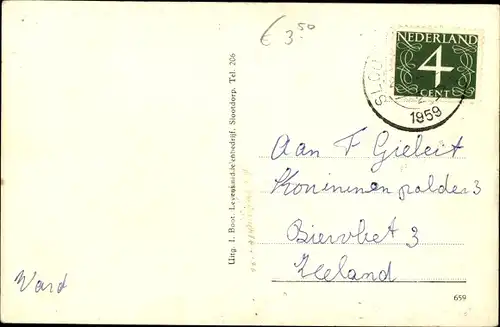 € 3.50
NEDERLAND
4
CENT
SLOO
1959
Uitg. I. Boot Levensmiddelenbedrijf, Slootdorp. Tel. 206
Aan F Gieleit
Koninnenpolder 3
Biervliet 3
Zeeland
Ward
659